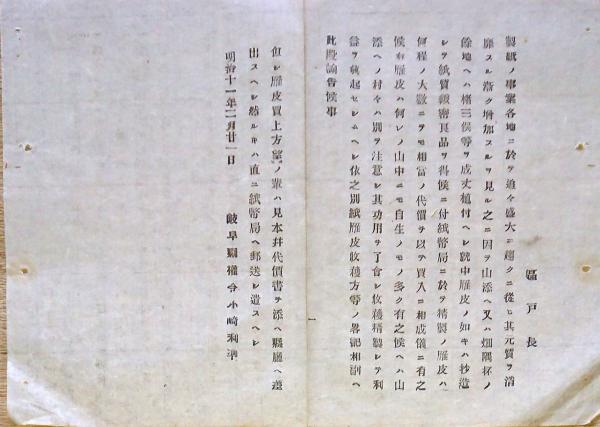 區戸長
製紙ノ事業各地ニ於テ追々盛大ニ趣クニ從ヒ其元質ヲ消
靡スル漸ク増加スルヲ見ル之ニ因ヲ山添ヘ又ハ畑隅杯ノ
餘地ヘハ楮三俣等ヲ成丈植付ヘシ就中雁皮ノ如キハ抄造
シテ紙質緻密良品ヲ得候ニ付紙幣局ニ於テ精製ノ雁皮ハ
何程ノ大數ニテモ相當ノ代價ヲ以テ買入ニ相成儀ニ有之
候右雁皮ハ何レノ山中ニモ自生ノモノ多ク有之候ヘハ山
添ヘノ村々ハ別テ注意シ其功用ヲ了會シ收穫精製シテ利
益ヲ興起セシムヘシ依之別紙雁皮收穫方等ノ畧記相副ヘ
此段諭告候事
一
但シ雁皮買上方望ノ輩ハ見本并代價書ヲ添ヘ縣廳ヘ差
出スヘシ然ルキハ直ニ紙幣局ヘ郵送シ遣スヘシ
明治十一年二月廿一日
岐阜縣權令小崎利準